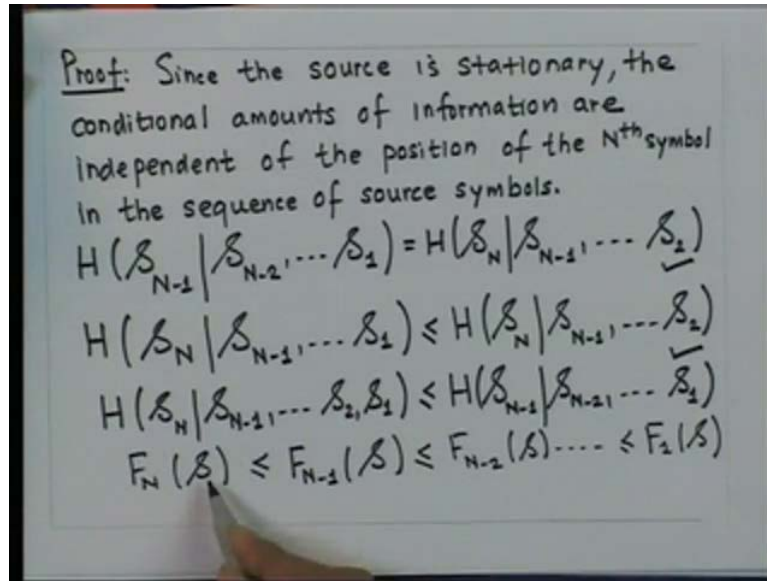 Proof: Since the source is stationary, the
conditional amounts of information are
independent of the position of the Nth symbol
in the sequence of source symbols.
H(S_{N-1}|S_{N-2},...S_1) = H(S_N|S_{N-1},...S_2)
H(S_N|S_{N-1},...S_1) ≤ H(S_N|S_{N-1},...S_2)
H(S_N|S_{N-1},...S_2,S_1) ≤ H(S_{N-1}|S_{N-2},...S_1)
F_N(S) ≤ F_{N-1}(S) ≤ F_{N-2}(S).... ≤ F_1(S)